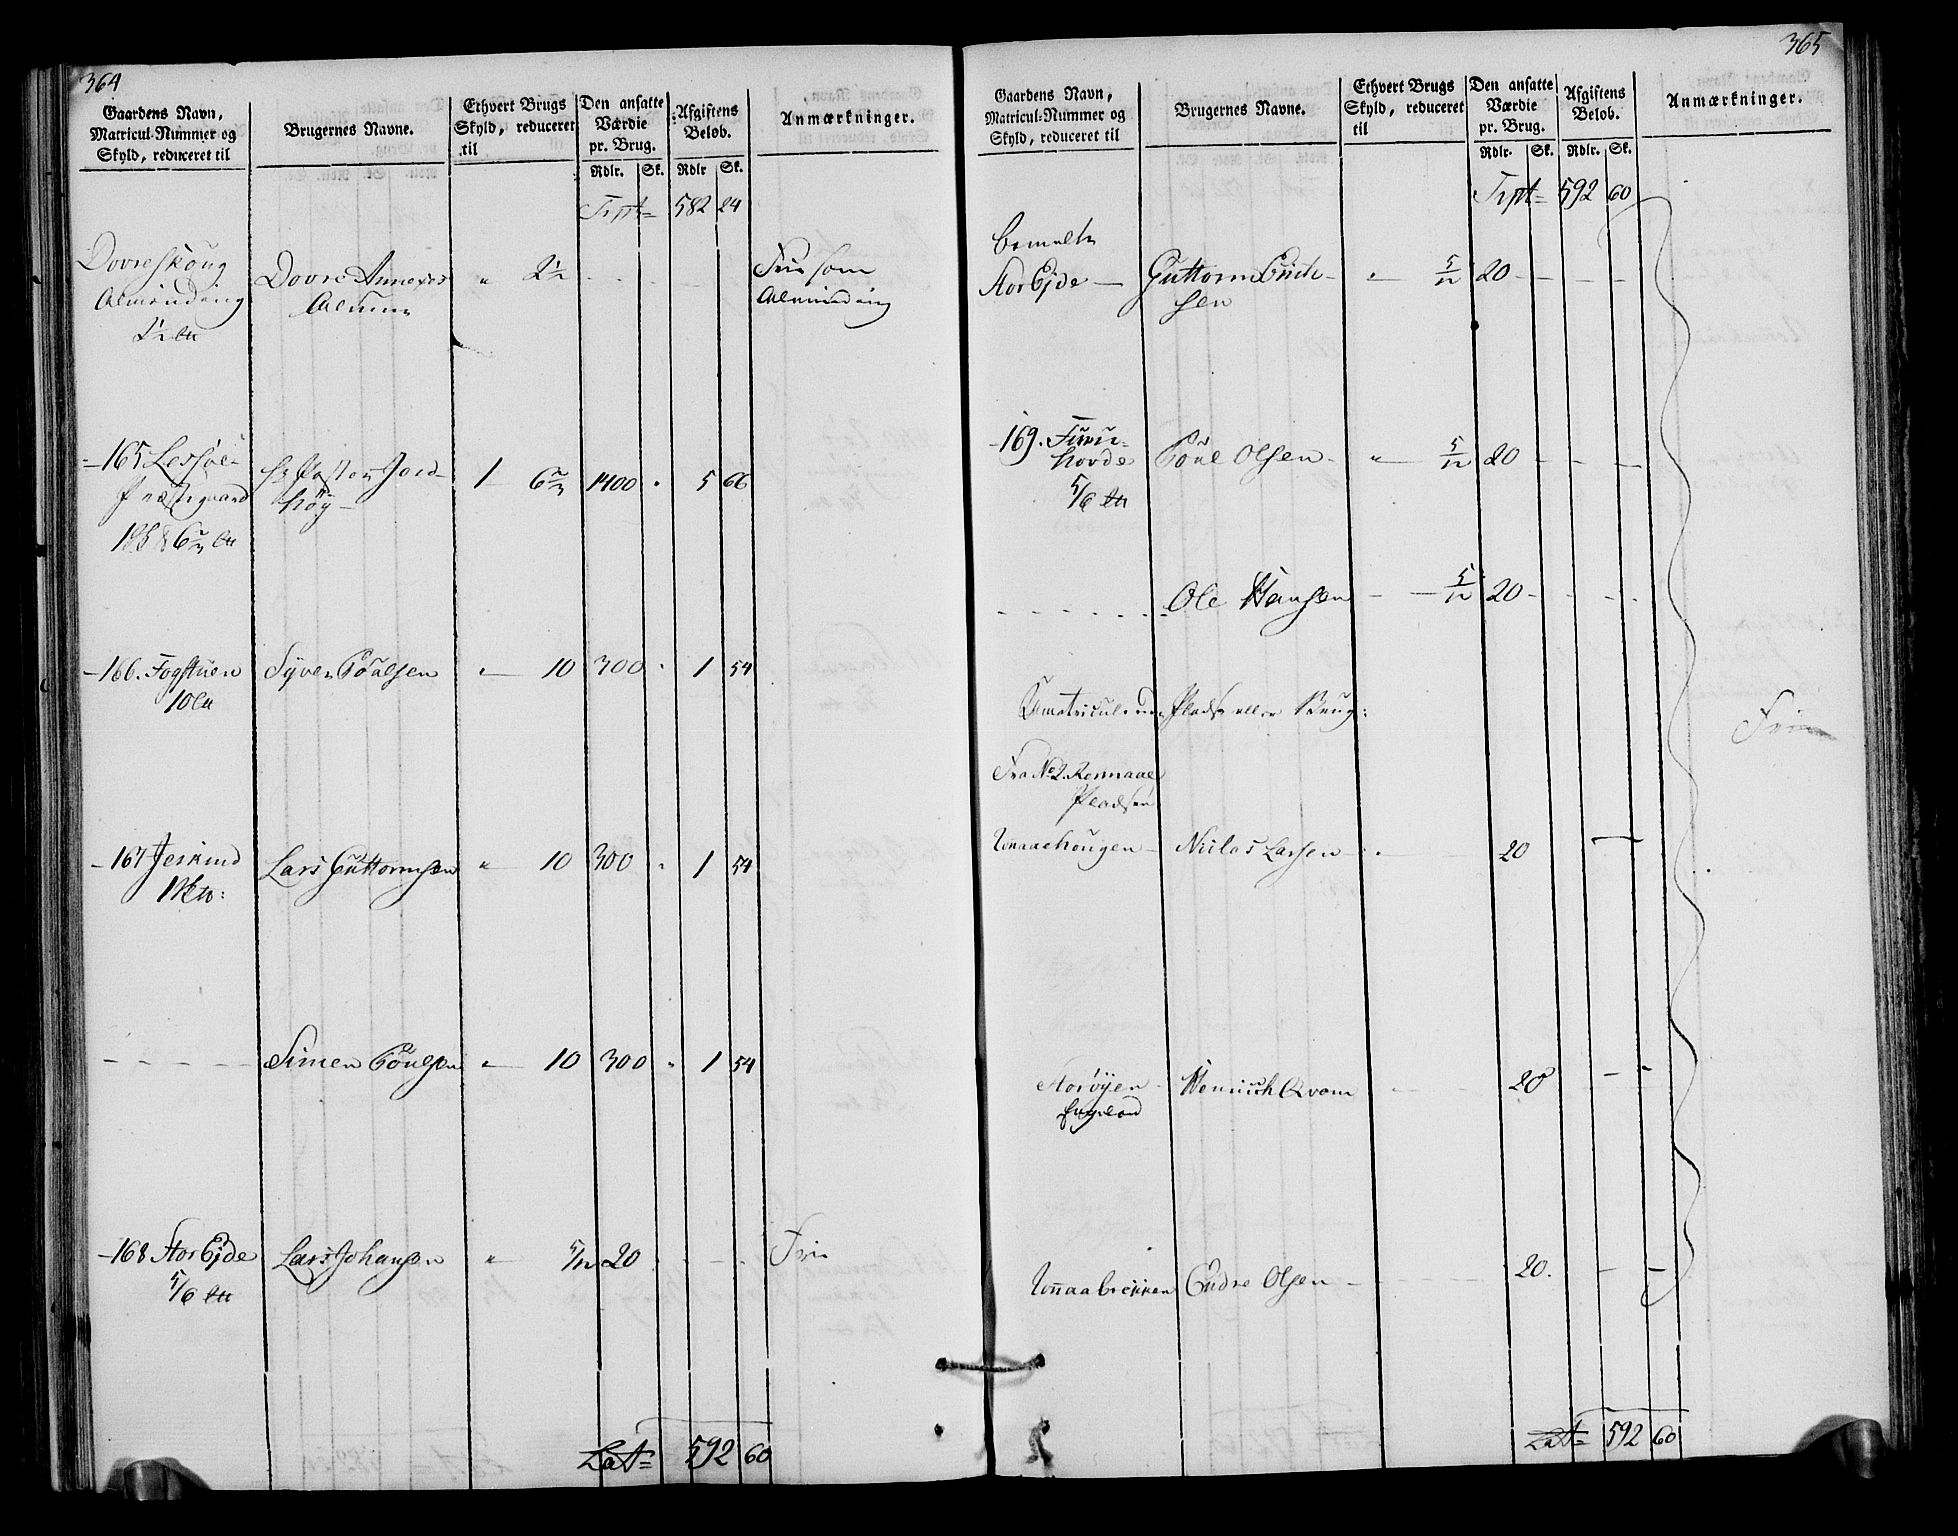 364
Gaardens Navn,
Matricul-Nummer og
Skyld, reduceret til
Brugernes Navne.
Ethvert Brugs
Skyld, reduceret
til
Den ansatte
Værdie
pr. Brug.
Rdlr. Sk.
Afgiftens
Beløb.
Rdlr Sk.
Anmærkninger.
Trpt= 582 24
Dovreskoug
Almending
2½
Dovre Annexes
Alm
" 2½
Frie som
Alminding
165 Lessøe
Præstegaard
Hr Pastor Jord
høy
1 6⅔ 1400 " 5 66
166. Fogstuen
10
Syver Poulsen " 10 300 " 1 54
167 Jerkind
Lars Guttormsen " 10 300 " 1 54
Simen Poulsen " 10 300 " 1 54
168 StorEjde
5/6
Lars Johansen " 5/12 20
Frie
Lat= 592 60
365
Gaardens Navn,
Matricul-Nummer og
Skyld, reduceret til
Brugernes Navne.
Ethvert Brugs
Skyld, reduceret
til
Den ansatte
Værdie
pr. Brug.
Rdlr. Sk.
Afgiftens
Beløb.
Rdlr. Sk.
Anmærkninger.
Trpt= 592 60
bemelte
StorEjde
Guttorm Erich-
sen
" 5/12 20
169. Furu-
hovde
5/6
Poul Olsen " 5/12 20
Ole Hansen 5/12 20
Umatriculerede Pladse eller Brug:
Frie
Fra No 2. Ronnaae
Pladsen
Nielas Larsen 20
Storøyen
Engeland
Henrich Qvam 20
Endre Olsen 20.
Lat= 592 60